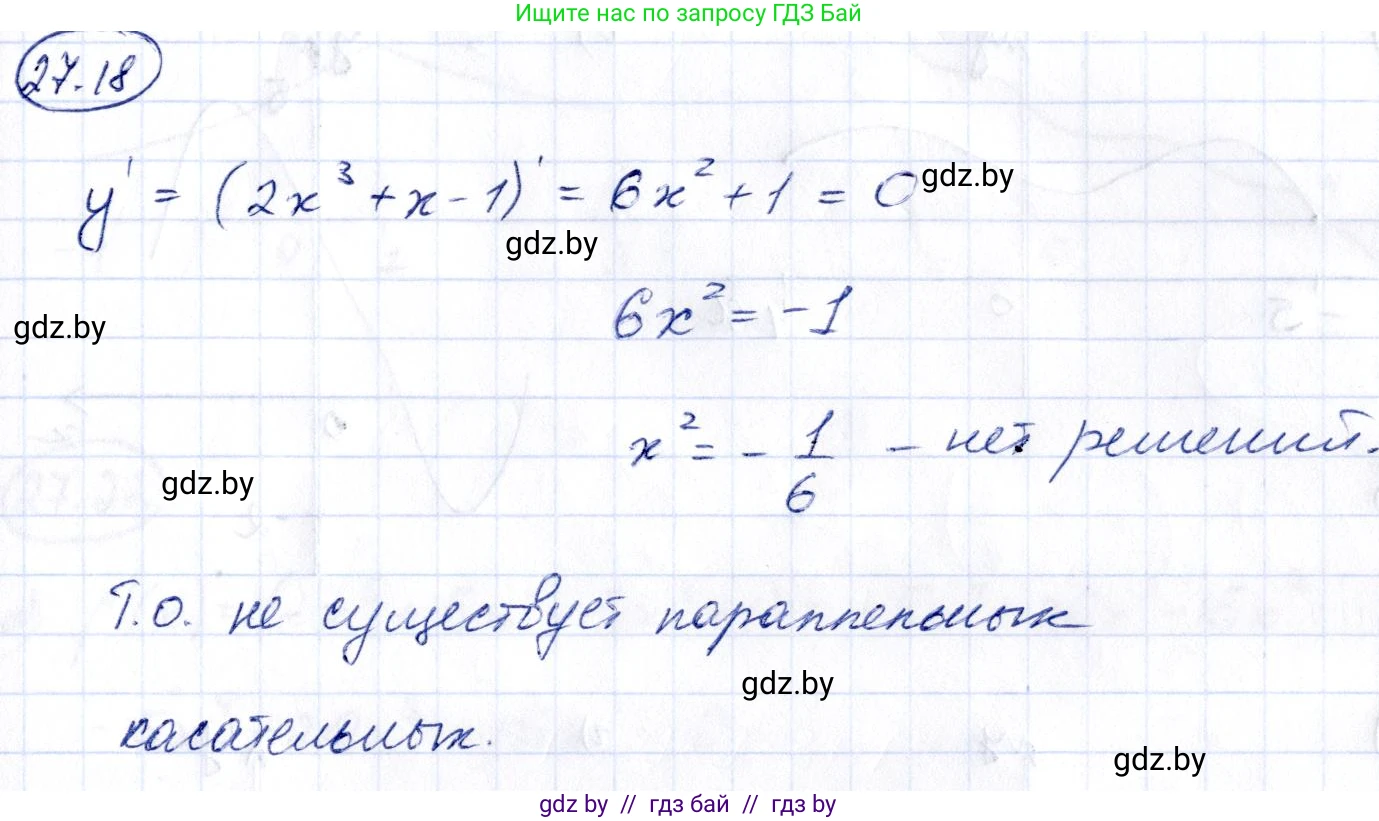 Ищите нас по запросу ГДЗ Бай
27.18
y' = (2x³ + x - 1)' = 6x² + 1 = 0
gdz.by
gdz.by
6x² = -1
gdz.by
x² = - 1/6 - нет решений.
gdz.by
Т.О. не существует параллельных
gdz.by
касательных.
gdz.by
gdz by // гдз бай // гдз by